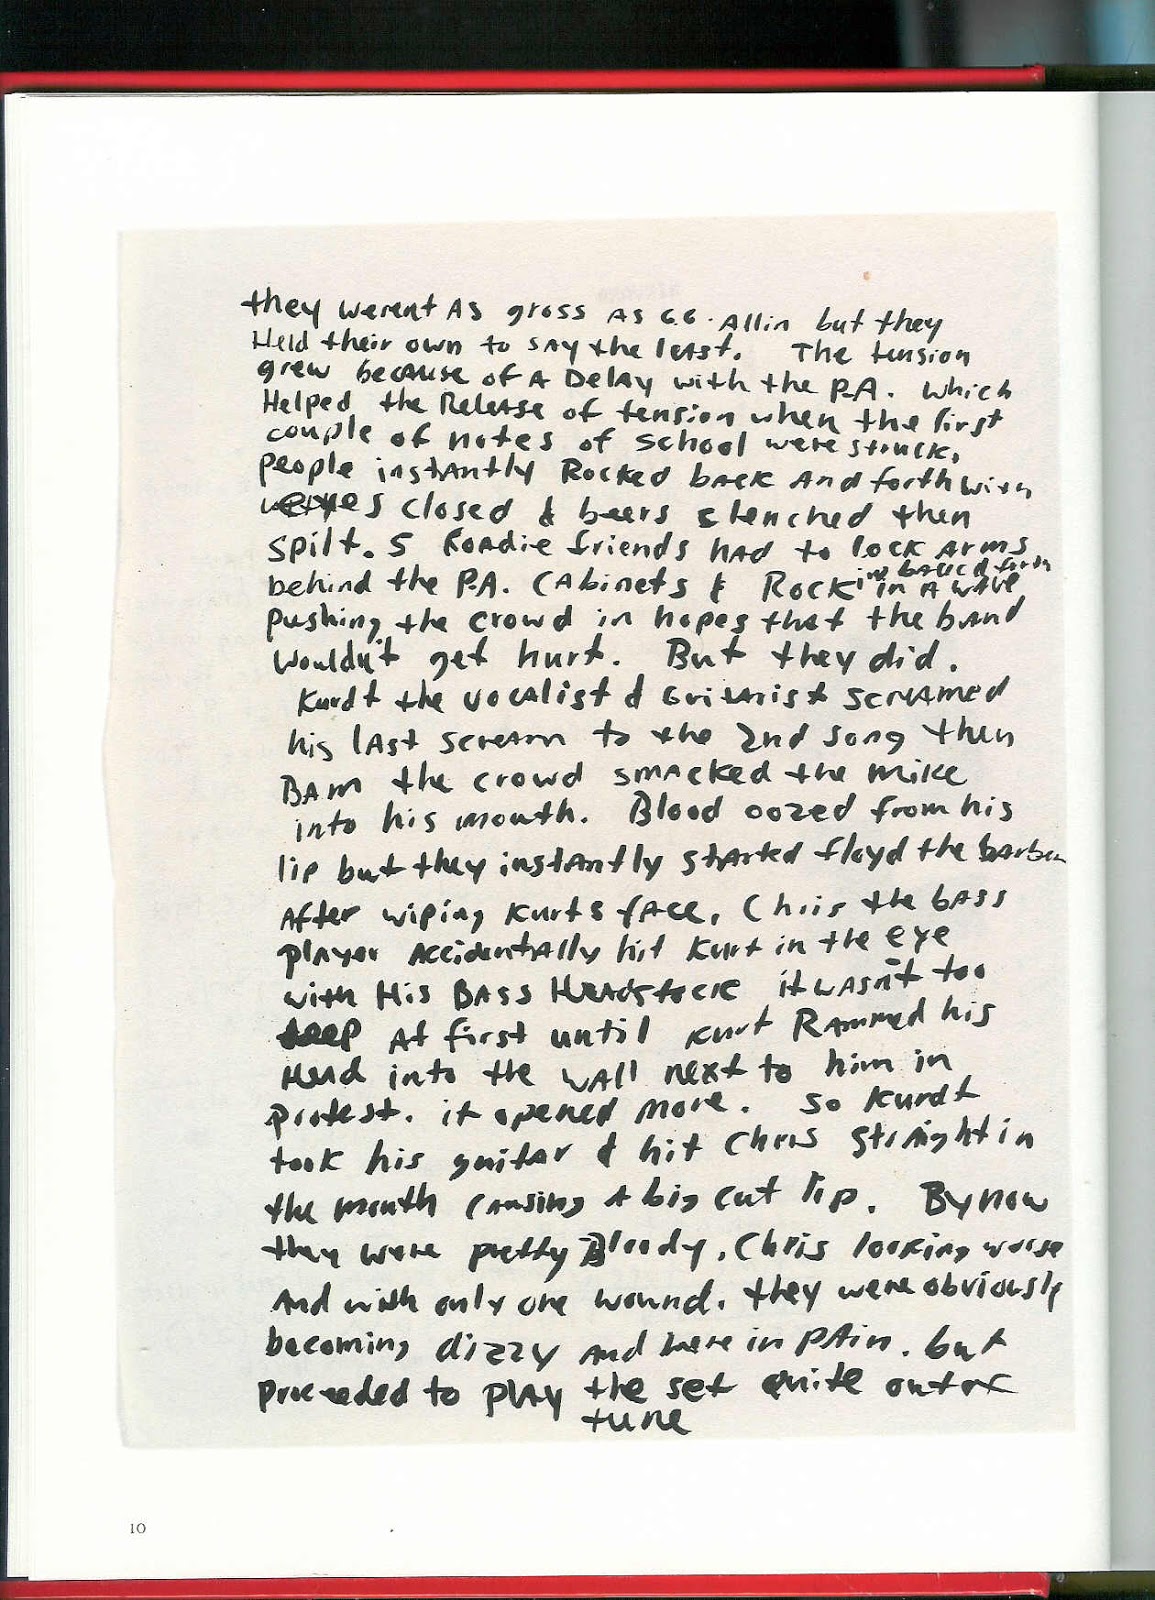 they werent As gross as G.G. Allin but they
Held their own to say the least. The tension
grew because of A Delay with the P.A. which
Helped the Release of tension when the first
couple of notes of school were struck.
people instantly Rocked back And forth with
eyes closed & beers clenched then
spilt. 5 Roadie friends had to lock arms
behind the P.A. Cabinets & Rock in back & forth
in a wave
pushing the crowd in hopes that the band
wouldn't get hurt. But they did.
Kurdt the vocalist & Guitarist screamed
his last scream to the 2nd song then
BAM the crowd smacked the mike
into his mouth. Blood oozed from his
lip but they instantly started floyd the barber
After wiping Kurts face, Chris the bass
player Accidentally hit Kurt in the eye
with His Bass Headstock it wasn't too
deep At first until Kurt Rammed his
Head into the wall next to him in
protest. it opened more. So Kurdt
took his guitar & hit Chris straight in
the mouth causing A big cut lip. By now
they were pretty Bloody, Chris looking worse
And with only one wound. they were obviously
becoming dizzy and were in pain. but
proceeded to play the set quite out of
tune
10